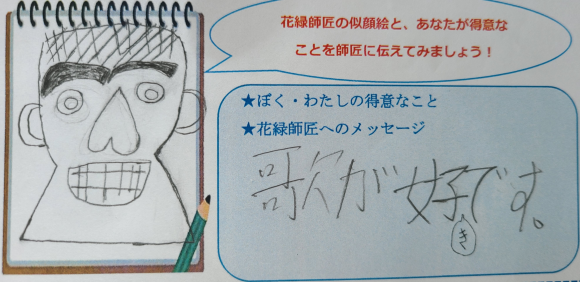 花緑師匠の似顔絵と、あなたが得意な
ことを師匠に伝えてみましょう！
★ぼく・わたしの得意なこと
★花緑師匠へのメッセージ
歌が好です。
き